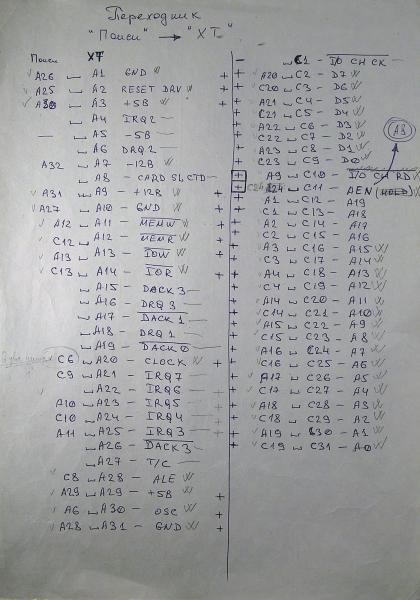 Переходник
"Поиск" → "XT"
Поиск XT
A26 A1 GND
A25 A2 RESET DRV +
A30 A3 +5B +
A4 IRQ2
A5 -5B
A6 DRQ2
A32 A7 -12B
A8 - CARD SLCTD
A31 A9 - +12B +
A27 A10 - GND +
A12 A11 - MEMW +
C12 A12 - MEMR +
A13 A13 - IOW +
C13 A14 - IOR +
A15 DACK3
A16 - DRQ3
A17 - DACK1
A18 - DRQ1
A19 - DACK0
C6 A20 - CLOCK +
C9 A21 - IRQ7
A22 - IRQ6
A10 A23 - IRQ5
C10 A24 - IRQ4
A11 A25 - IRQ3
A26 - DACK3
A27 - T/C
C8 A28 - ALE
A29 A29 - +5B +
A6 A30 - OSC +
A28 A31 - GND +
C1 - I/O CH CK
+ A20 C2 - D7
+ C20 C3 - D6
+ A21 C4 - D5
+ C21 C5 - D4
+ A22 C6 - D3
+ C22 C7 - D2
+ A23 C8 - D1
+ C23 C9 - D0
A8
+ A9 C10 - I/O CH RD
+ C24 C11 - AEN (HOLD)
+ A1 C12 - A19
+ C1 C13 - A18
+ A2 C14 - A17
+ C2 C15 - A16
+ A3 C16 - A15
+ C3 C17 - A14
+ A4 C18 - A13
+ C4 C19 - A12
+ A14 C20 - A11
+ C14 C21 - A10
+ A15 C22 - A9
+ C15 C23 - A8
+ A16 C24 - A7
+ C16 C25 - A6
+ A17 C26 - A5
+ C17 C27 - A4
+ A18 C28 - A3
+ C18 C29 - A2
+ A19 C30 - A1
+ C19 C31 - A0